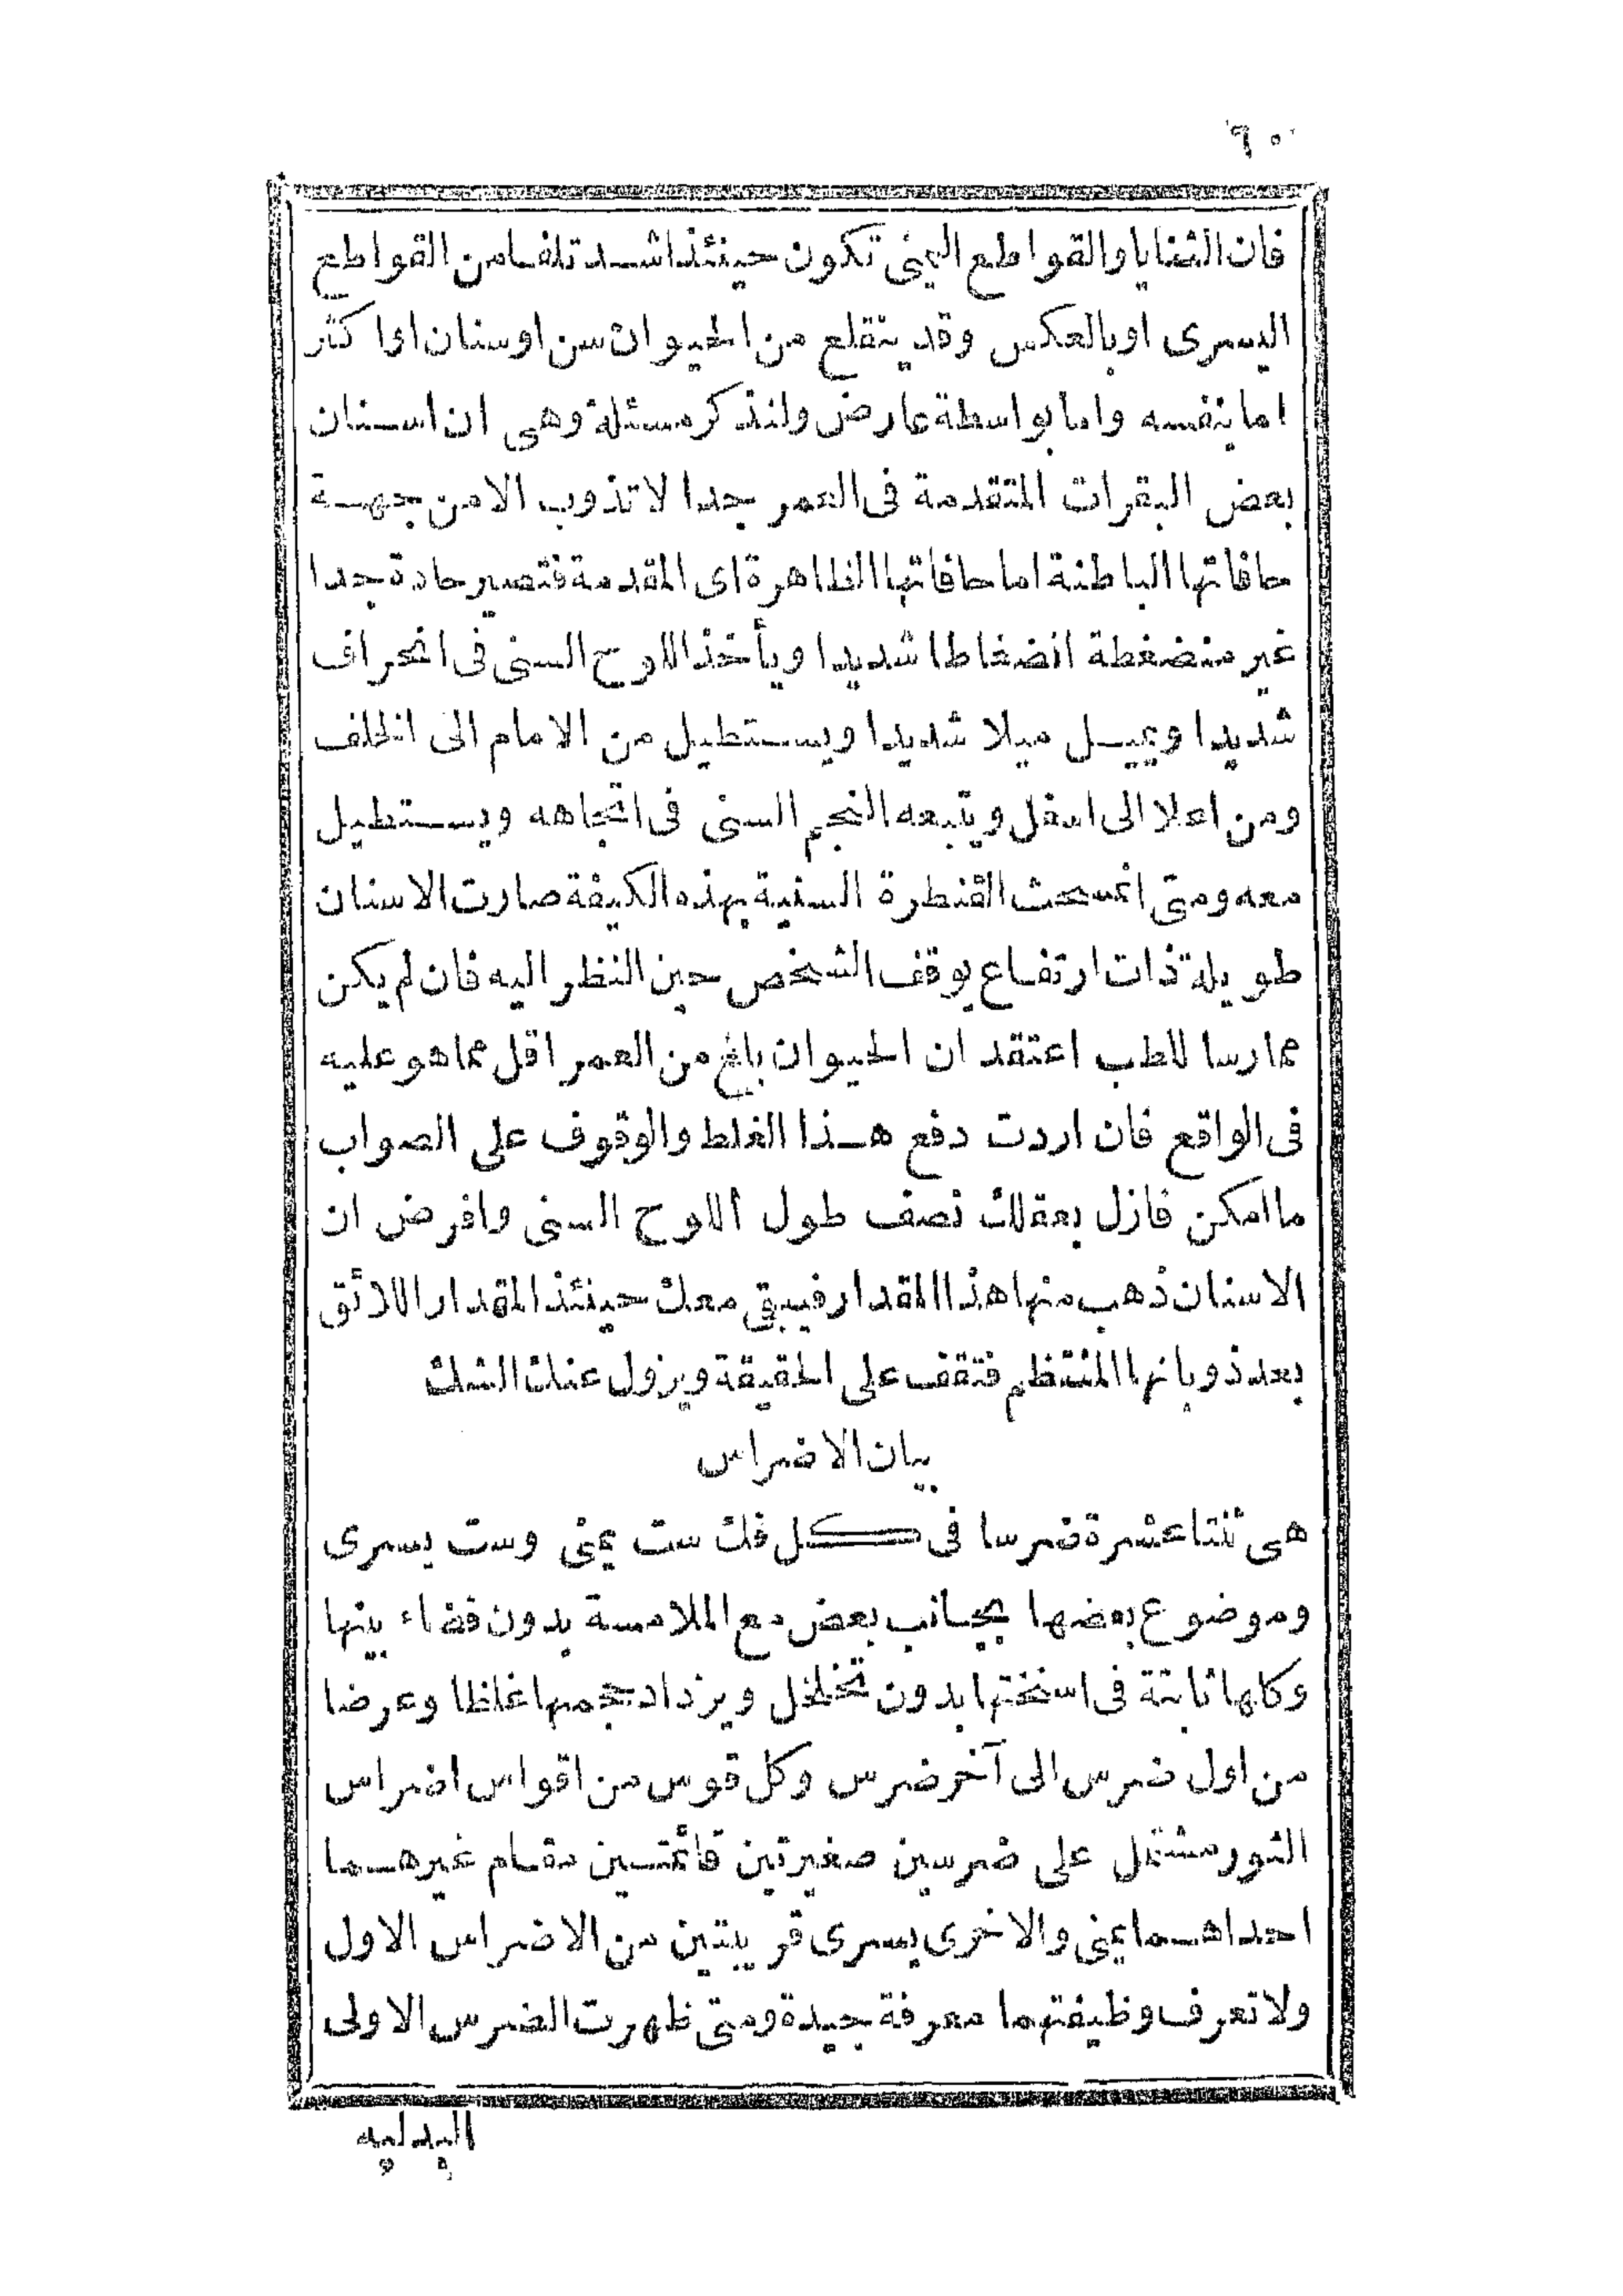 ٩٠
فان الثنايا والقواطع اليمنى تكون حينئذ اشد تلفا من القواطع
اليسرى او بالعكس وقد ينقلع من الحيوان سن او سنان او اكثر
اما بنفسه واما بواسطة عارض ولنذكر مسئلة وهى ان اسنان
بعض البقرات المتقدمة فى العمر جدا لا تذوب الا من جهة
حافاتها الباطنة اما حافاتها الظاهرة اى المقدمة فتصير حادة جدا
غير منضغطة انضغاطا شديدا ويأخذ اللوح السنى فى انحراف
شديدا ويميل ميلا شديدا ويستطيل من الامام الى الخلف
ومن اعلا الى اسفل ويتبعه النجم السنى فى اتجاهه ويستطيل
معه ومتى انمسحت القنطرة السنية بهذه الكيفة صارت الاسنان
طويلة ذات ارتفاع يوقف الشخص حين النظر اليه فان لم يكن
ممارسا للطب اعتقد ان الحيوان بالغ من العمر اقل مما هو عليه
فى الواقع فان اردت دفع هذا الغلط والوقوف على الصواب
ما امكن فازل بعقلك نصف طول اللوح السنى وافرض ان
الاسنان ذهب منها هذا المقدار فيبقى معك حينئذ المقدار اللائق
بعد ذوبانها المنتظم فتقف على الحقيقة ويزول عنك الشك
بيان الاضراس
هى ثنتا عشرة ضرسا فى كل فك ست يمنى وست يسرى
وموضوع بعضها بجانب بعض مع الملامسة بدون فضاء بينها
وكلها ثابتة فى اسنختها بدون تخلخل ويزداد حجمها غلظا وعرضا
من اول ضرس الى آخر ضرس وكل قوس من اقواس اضراس
الثور مشتمل على ضرسين صغيرتين قائمتين مقام غيرهما
احداهما يمنى والاخرى يسرى قريبتين من الاضراس الاول
ولا تعرف وظيفتهما معرفة جيدة ومتى ظهرت الضرس الاولى
البدليه